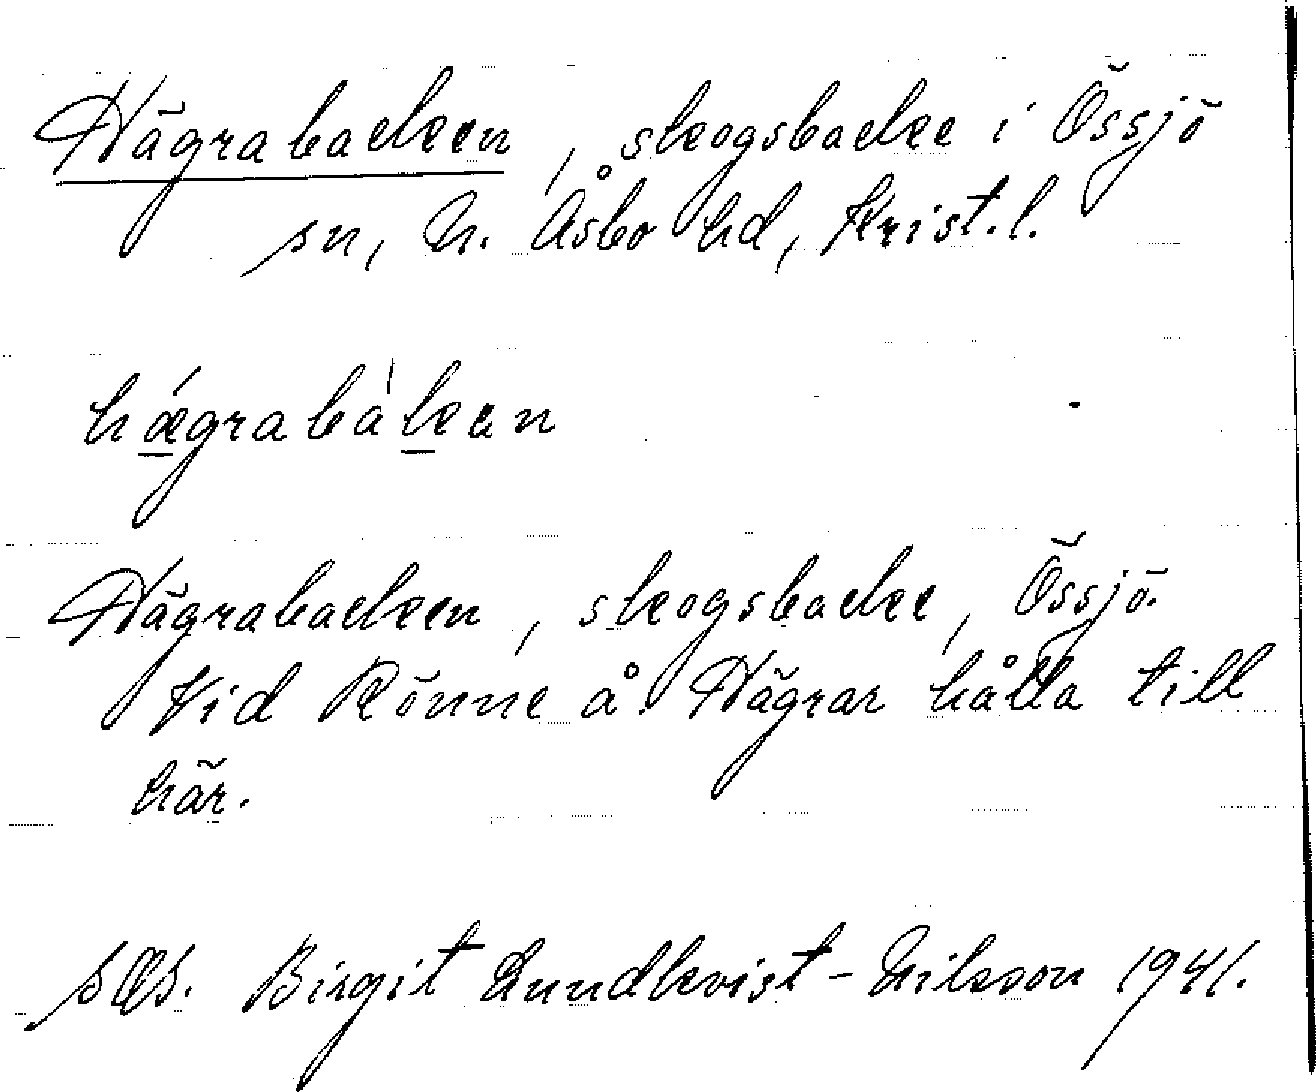 Hägrabacken, skogsbacke i Össjö
sn, N. Åsbo hd, Krist. l.
hǽgrabàkan
Hägrabacken, skogsbacke, Össjö.
Vid Rönne å. Hägrar hålla till
här.
Birgit Lundkvist-Nilsson 1941.